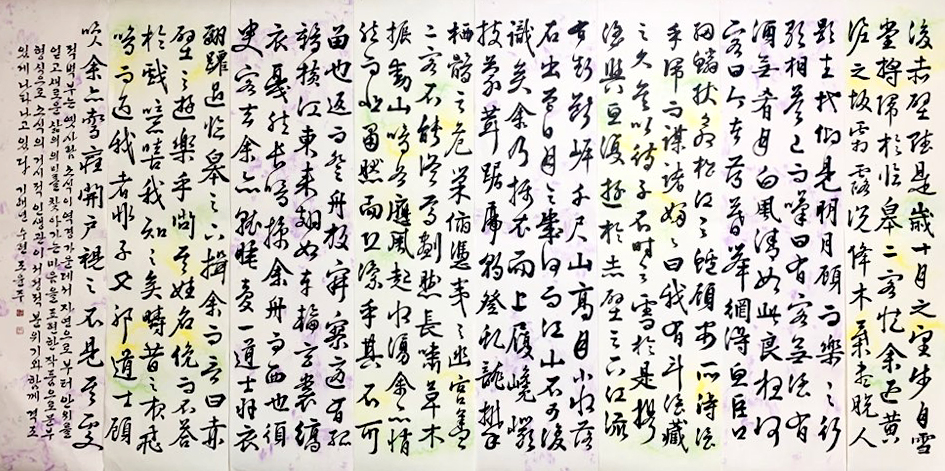 後赤壁賦 是歲十月之望步自雪
堂將歸於臨皋二客從余過黃
泥之坂霜露既降木葉盡脫人
影在地仰見明月顧而樂之行
歌相答已而嘆曰有客無酒有
酒無肴月白風清如此良夜何
客曰今者薄暮擧網得魚巨口
細鱗狀如松江之鱸顧安所得酒
乎歸而謀諸婦婦曰我有斗酒藏
之久矣以待子不時之需於是携
酒與魚復遊於赤壁之下江流
有聲斷岸千尺山高月小水落
石出曾日月之幾何而江山不可復
識矣余乃攝衣而上履巉巖
披蒙茸踞虎豹登虬龍攀
栖鶻之危巢俯馮夷之幽宮蓋
二客不能從焉劃然長嘯草木
振動山鳴谷應風起水湧余亦悄
然而悲肅然而恐凜乎其不可
留也返而登舟 寂寥適有孤
鶴橫江東來翅如車輪玄裳縞
衣戛然長鳴掠余舟而西也須
臾客去余亦就睡夢一道士羽衣
翩躚過臨皋之下揖余而言曰赤
壁之遊樂乎問其姓名俛而不答
於戲噫嘻我知之矣疇昔之夜飛
鳴而過我者非子也邪道士顧
笑余亦驚寤開戶視之不見其處
적벽부는 옛사람 소식이 역경 가운데서 자연으로부터 안위를
얻고 새로운 삶의 의미를 찾아가는 마음을 표현한 작품으로
형식으로 소식의 거시적 인생관이 서정적 분위기와 함께 격조
있게 나타나고 있다 기해년 수현